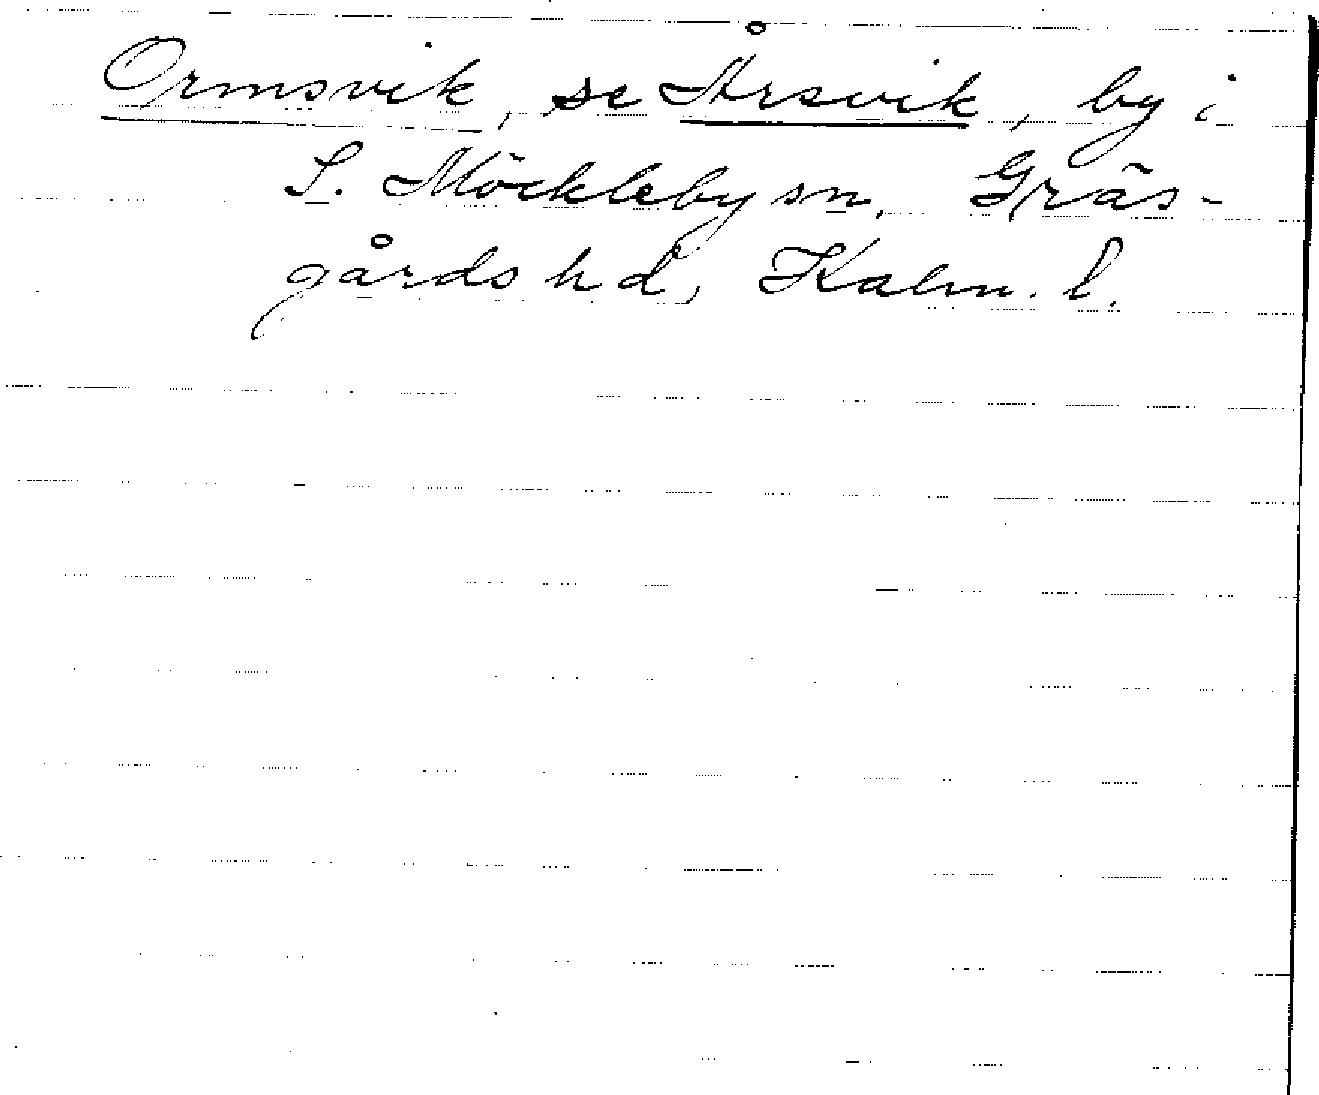 Ormsvik, se Årsvik, by i
S. Möckleby sn, Gräs-
gårds hd, Kalm. l.